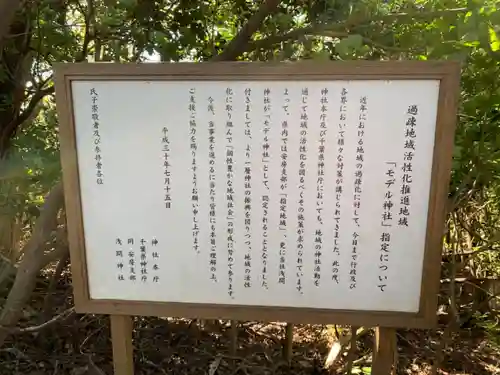 過疎地域活性化推進地域
「モデル神社」指定について
近年における地域の過疎化に対して、今日まで行政及び
各界において様々な対策が講じられてきました。此の度、
神社本庁及び千葉県神社庁においても、地域の神社活動を
通じて地域の活性化を図るべくその施策が求められています。
よって、県内では安房支部が「指定地域」、更に当社浅間
神社が「モデル神社」として、認定されることとなりました。
付きましては、より一層神社の振興を図りつつ、地域の活性
化に取り組んで「個性豊かな地域社会」の形成に努めて参ります。
今後、当事業を進めるに当たり皆様にも本旨ご理解の上、
ご支援ご協力を賜りますようお願い申し上げます。
平成三十年七月十五日
神社本庁
千葉県神社庁
同安房支部
浅間神社
氏子崇敬者及び参拝者各位